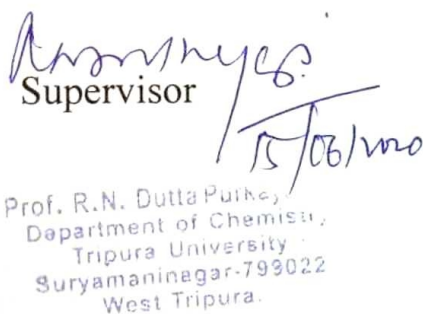 Supervisor
15/06/2020
Prof. R.N. Dutta
Department of
Tripura University
Suryamaninagar-799022
West Tripura.